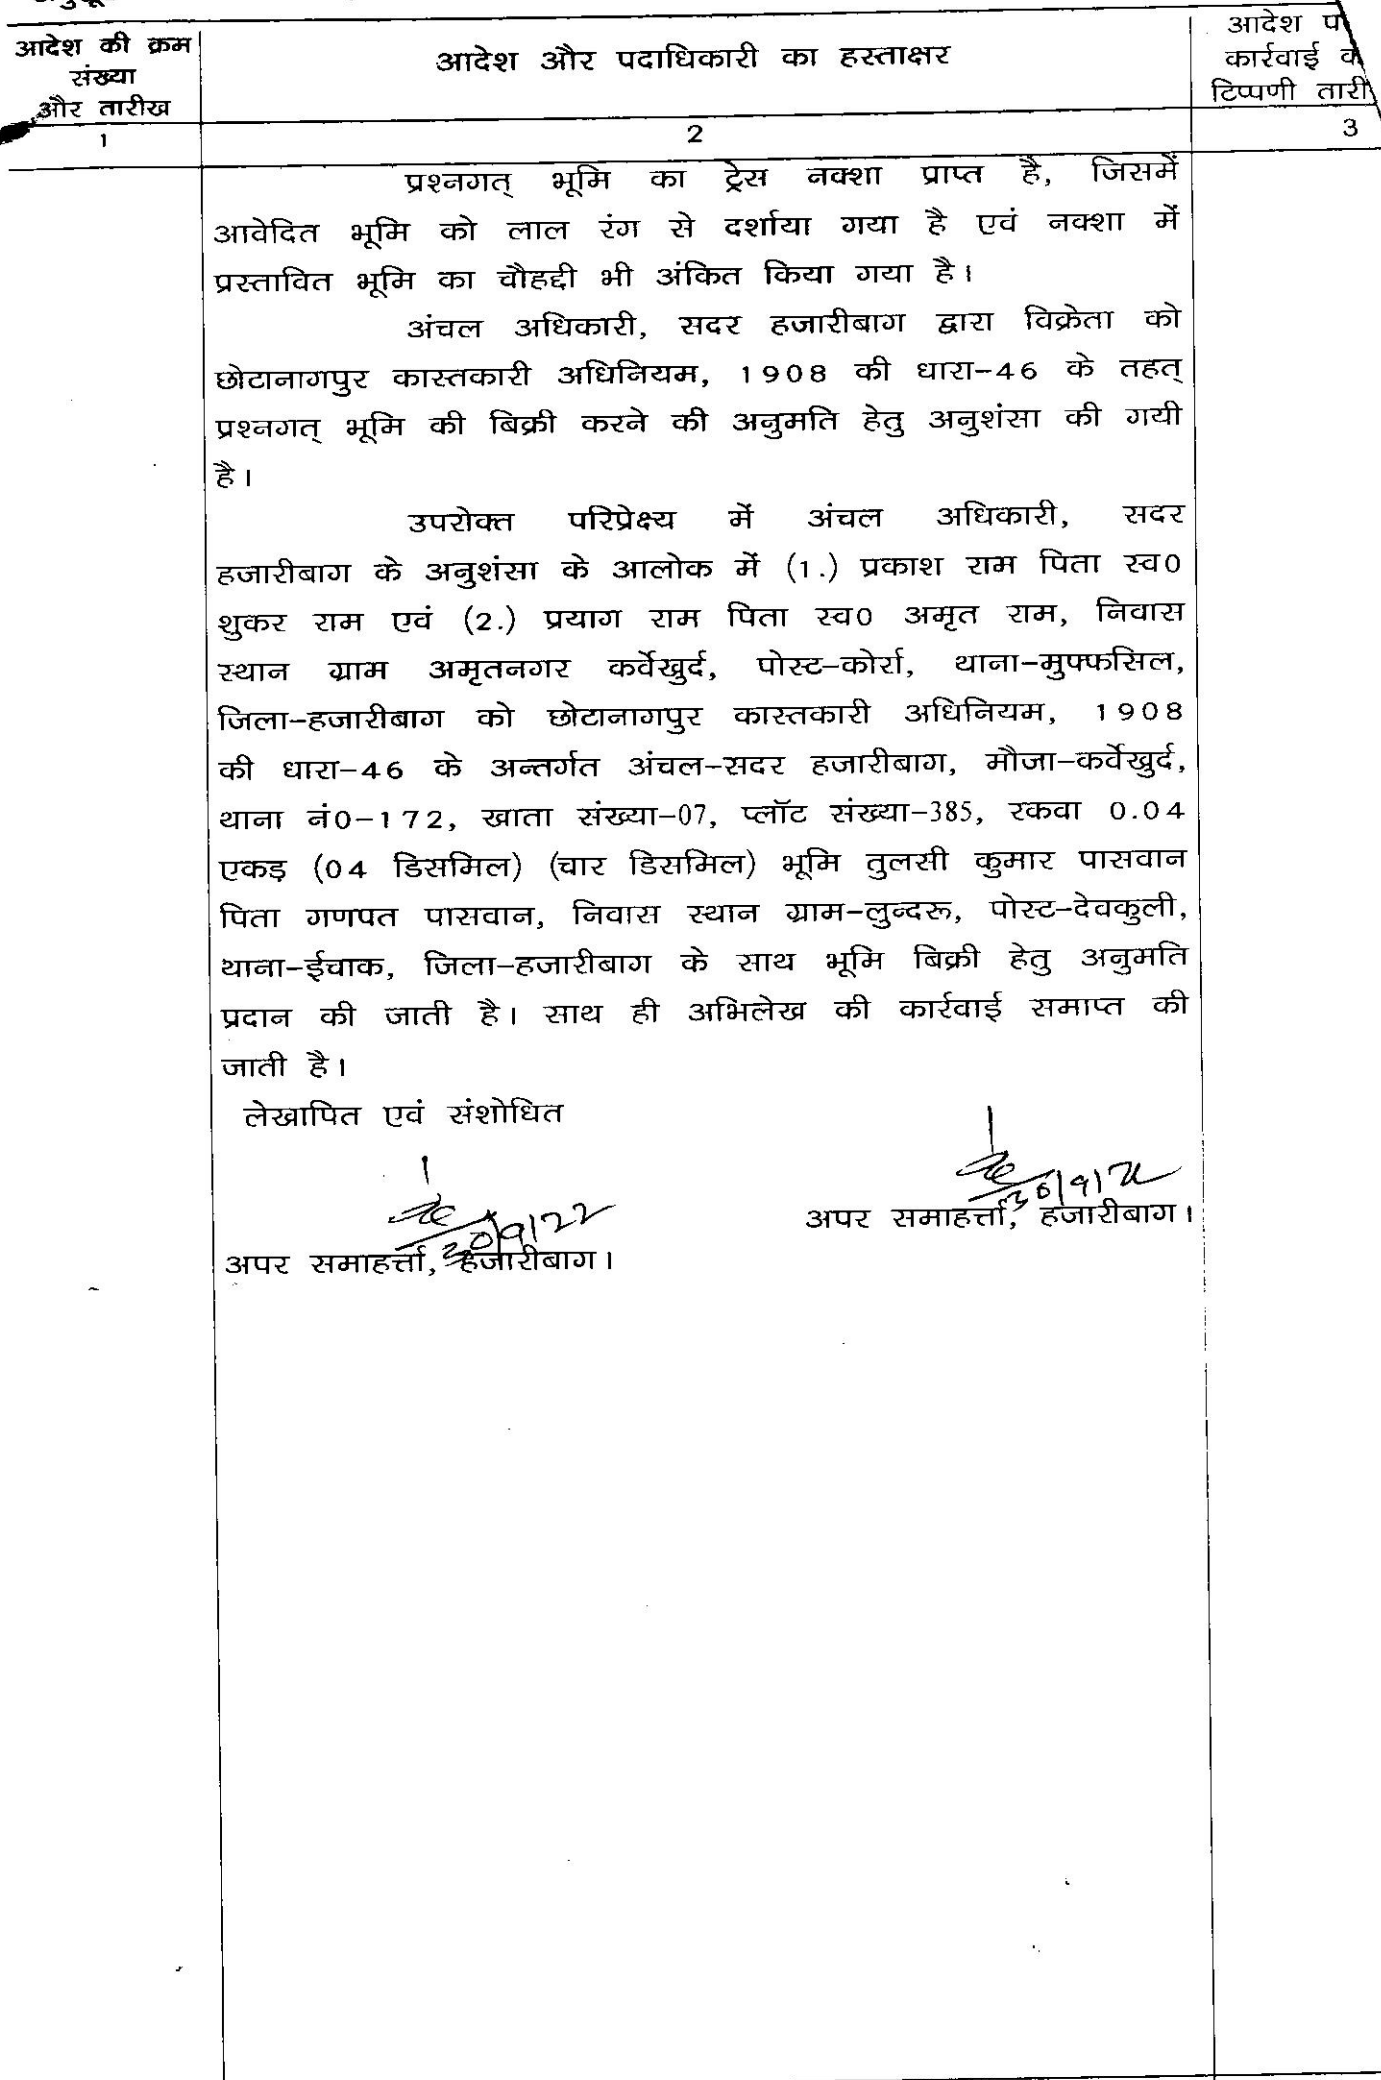 आदेश की क्रम
संख्या
और तारीख
आदेश और पदाधिकारी का हस्ताक्षर
आदेश
कार्रवाई
टिप्पणी तारी
1
2
3
प्रश्नगत् भूमि का ट्रेस नक्शा प्राप्त है, जिसमें
आवेदित भूमि को लाल रंग से दर्शाया गया है एवं नक्शा में
प्रस्तावित भूमि का चौहद्दी भी अंकित किया गया है।
अंचल अधिकारी, सदर हजारीबाग द्वारा विक्रेता को
छोटानागपुर कास्तकारी अधिनियम, 1908 की धारा-46 के तहत्
प्रश्नगत् भूमि की बिक्री करने की अनुमति हेतु अनुशंसा की गयी
है।
उपरोक्त परिप्रेक्ष्य में अंचल अधिकारी, सदर
हजारीबाग के अनुशंसा के आलोक में (1.) प्रकाश राम पिता स्व0
शुकर राम एवं (2.) प्रयाग राम पिता स्व0 अमृत राम, निवास
स्थान ग्राम अमृतनगर कर्वेखुर्द, पोस्ट-कोर्रा, थाना-मुफ्फसिल,
जिला-हजारीबाग को छोटानागपुर कास्तकारी अधिनियम, 1908
की धारा-46 के अन्तर्गत अंचल-सदर हजारीबाग, मौजा-कर्वेखुर्द,
थाना नं0-172, खाता संख्या-07, प्लॉट संख्या-385, रकवा 0.04
एकड़ (04 डिसमिल) (चार डिसमिल) भूमि तुलसी कुमार पासवान
पिता गणपत पासवान, निवास स्थान ग्राम-लुन्दरू, पोस्ट-देवकुली,
थाना-ईचाक, जिला-हजारीबाग के साथ भूमि बिक्री हेतु अनुमति
प्रदान की जाती है। साथ ही अभिलेख की कार्रवाई समाप्त की
जाती है।
लेखापित एवं संशोधित
30/9/22
30/9/22
अपर समाहर्त्ता, हजारीबाग।
अपर समाहर्त्ता, हजारीबाग।